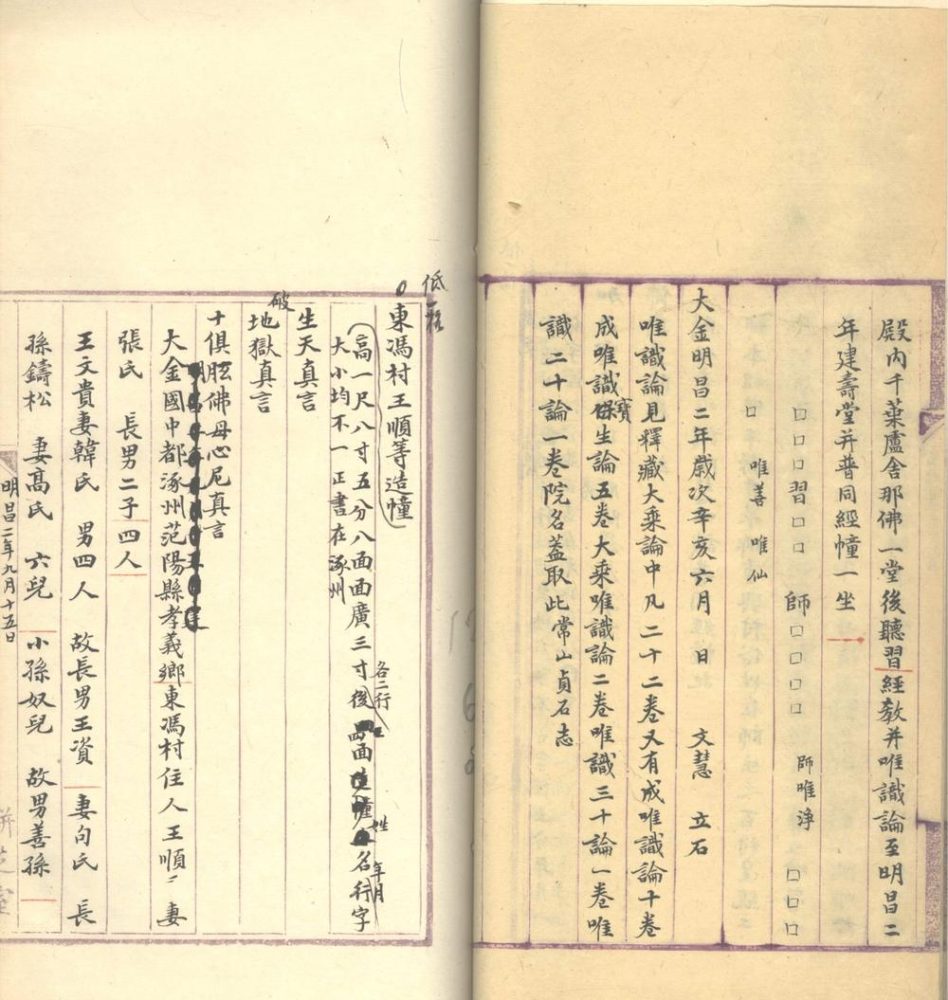 殿内千葉盧舍那佛一堂後聽習經教并唯識論至明昌二
年建壽堂并普同經幢一坐
□□□習□□ 師□□□□ 師唯淨 □□□
□ 唯善 唯仙
大金明昌二年歲次辛亥六月 日 文慧 立石
唯識論見釋藏大乘論中凡二十二卷又有成唯識論十卷
成唯識寶生論五卷大乘唯識論二卷唯識三十論一卷唯
識二十論一卷院名蓋取此常山貞石志
低一格
東馮村王順等造幢
高一尺八寸五分八面面廣三寸後面各二行姓名年月行字
大小均不一正書在涿州
生天真言
破地獄真言
十俱胝佛母心尼真言
大金國中都涿州范陽縣孝義鄉東馮村住人王順〻妻
張氏 長男二子四人
王文貴妻韓氏 男四人 故長男王資 妻向氏 長
孫鑄松 妻髙氏 六兒 小孫奴兒 故男善孫
明昌二年九月十五日